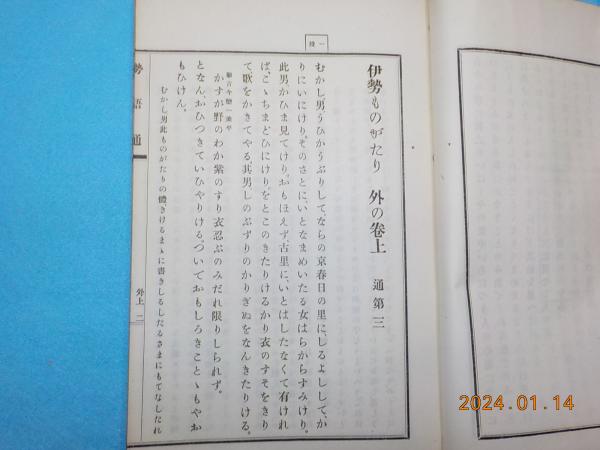 一段
伊勢ものがたり 外の卷上 通第三
むかし男、うひかうぶりして、ならの京春日の里に、しるよしして、か
りにいにけり。そのさとに、いとなまめいたる女はらからすみけり。
此男かひま見てけり。おもほえず、古里に、いとはしたなくて有けれ
ば、こゝちまどひにけり。をとこのきたりけるかり衣のすそをきり
て、歌をかきてやる。其男しのぶずりのかりぎぬをなんきたりける。
かすが野のわか紫のすり衣忍ぶのみだれ限りしられず。
となん、おひつきていひやりける。ついておもしろきことゝもやお
もひけん。
むかし男此ものがたりの體、きけるまゝに書きしるしたるさまにもてなしたれ
勢語通
外上 二
2024.01.14